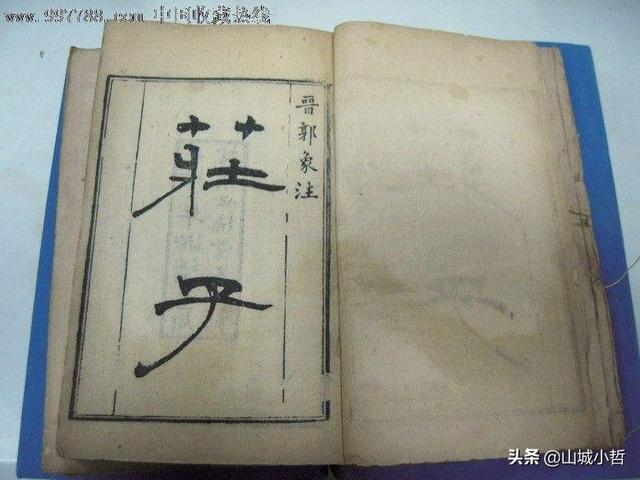 www.997788.com 中国收藏热线
晋郭象注
莊子
头条 @山城小哲